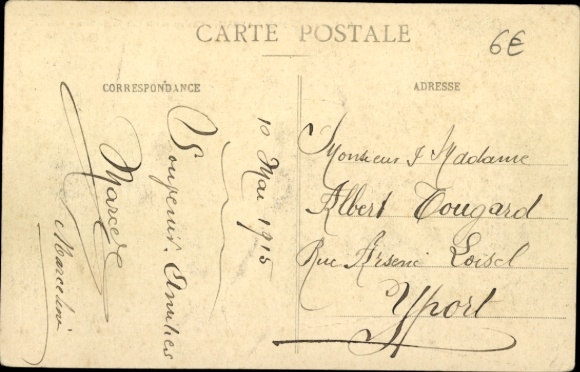 CARTE POSTALE
6€
CORRESPONDANCE
ADRESSE
10 Mai 1915
Souvenir. Amitiés
Marcel
Marceline
Monsieur & Madame
Albert Tougard
Rue Arsène Loisel
Yport